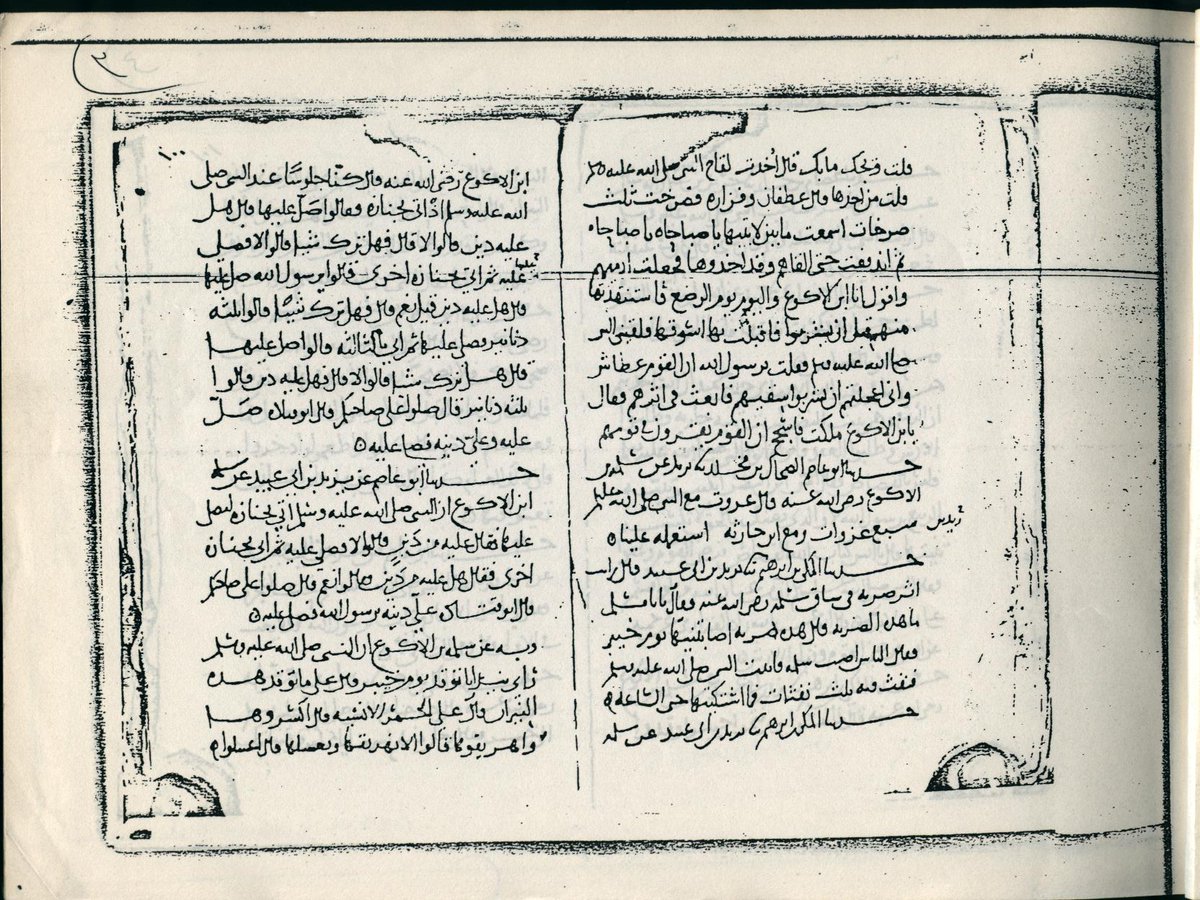 ٣
قلت ويحك ما بك قال أخذت لقاح النبي صلى الله عليه وسلم
قلت من اخذها قال غطفان وفزاره فصرخت ثلث
صرخات اسمعت ما بين لابتيها يا صباحاه يا صباحاه
ثم اندفعت حتى القاهم وقد اخذوها فجعلت ارميهم
واقول انا ابن الاكوع واليوم يوم الرضع فاستنقذتها
منهم قبل ان يشربوا فاقبلت بها اسوقها فلقيني النبي
صلى الله عليه وسلم فقلت يرسول الله ان القوم عطاش
واني اعجلتهم ان يشربوا سقيهم فابعث في اثرهم فقال
يابن الاكوع ملكت فاسجح ان القوم يقرون في قومهم
حدثنا ابو عاصم الضحاك بن مخلد ثنا يزيد عن سلمه بن
الاكوع رضي الله عنه قال غزوت مع النبي صلى الله عليه وسلم
سبع غزوات ومع ابن حارثه استعمله علينا
زيد بن
حدثنا المكي بن ابرهيم ثنا يزيد بن ابي عبيد قال رايت
اثر ضربه في ساق سلمه رضي الله عنه فقال يابا مسلم
ما هذه الضربه قال هذه ضربه اصابتنيها يوم خيبر
فقال الناس اصيب سلمه فاتيت النبي صلى الله عليه وسلم
فنفث فيه ثلث نفثات فما اشتكيتها حتى الساعه
حدثنا المكي بن ابرهيم ثنا يزيد بن ابي عبيد عن سلمه
١٠٠
ابن الاكوع رضي الله عنه قال كنا جلوسًا عند النبي صلى
الله عليه وسلم اذ اتي بجنازه فقالوا صل عليها قال هل
عليه دين قالوا لا قال فهل ترك شيا قالوا لا فصلى
عليه ثم اتي بجنازه اخرى فقالوا يرسول الله صل عليها
قال هل عليه دين قيل نعم قال فهل ترك شيًا قالوا ثلثه
دنانير فصلى عليها ثم اتي بالثالثه قالوا صل عليها
قال هل ترك شيا قالوا لا قال فهل عليه دين قالوا
ثلثه دنانير قال صلوا على صاحبكم قال ابو قتاده صل
عليه وعلي دينه فصلى عليه
حدثنا ابو عاصم عن يزيد بن ابي عبيد عن سلمه
ابن الاكوع ان النبي صلى الله عليه وسلم أتي بجنازه ليصلي
عليها فقال عليه من دين قالوا لا فصلى عليه ثم اتي بجنازه
اخرى فقال هل عليه من دين قالوا نعم قال صلوا على صاحبكم
قال ابو قتاده علي دينه يرسول الله فصلى عليه
وبه عن سلمه بن الاكوع ان النبي صلى الله عليه وسلم
راى نيرانا توقد يوم خيبر قال على ما توقد هذه
النيران قال على الحمر الانسيه قال اكسروها
واهريقوها قالوا الا نهريقها ونغسلها قال اغسلوا